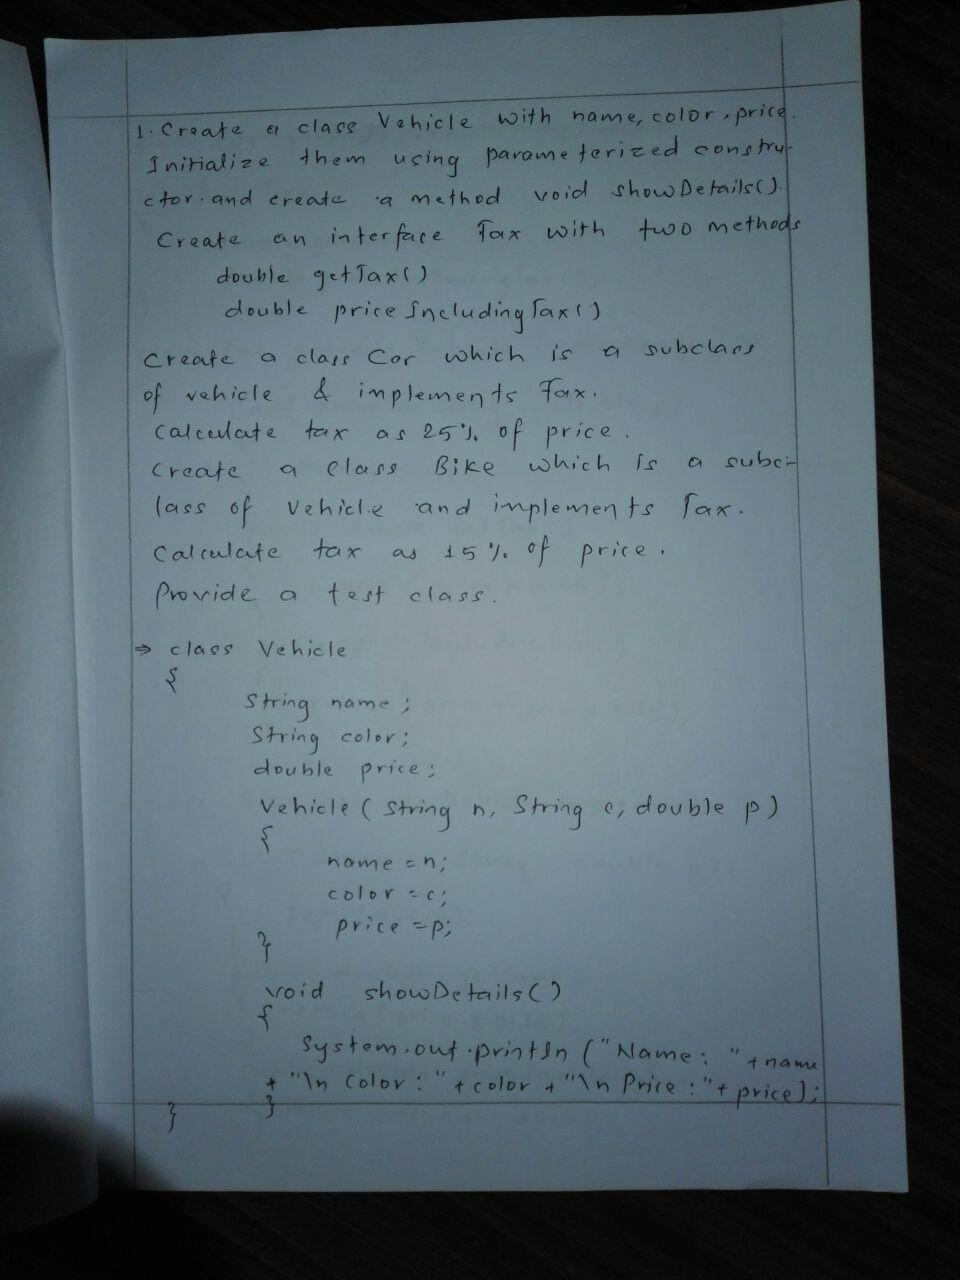 1. Create a class Vehicle with name, color, price.
Initialize them using parameterized constru-
ctor. and create a method void showDetails().
Create an interface Tax with two methods
double getTax()
double priceIncludingTax()
Create a class Car which is a subclass
of vehicle & implements Tax.
Calculate tax as 25% of price.
Create a class Bike which is a subc-
lass of vehicle and implements Tax.
Calculate tax as 15% of price.
Provide a test class.
⇒ class Vehicle
{
String name;
String color;
double price;
Vehicle (String n, String c, double p)
{
name = n;
color = c;
price = p;
}
void showDetails()
{
System.out.println ("Name: " + name
+ "\n Color : " + color + "\n Price : " + price);
}
}